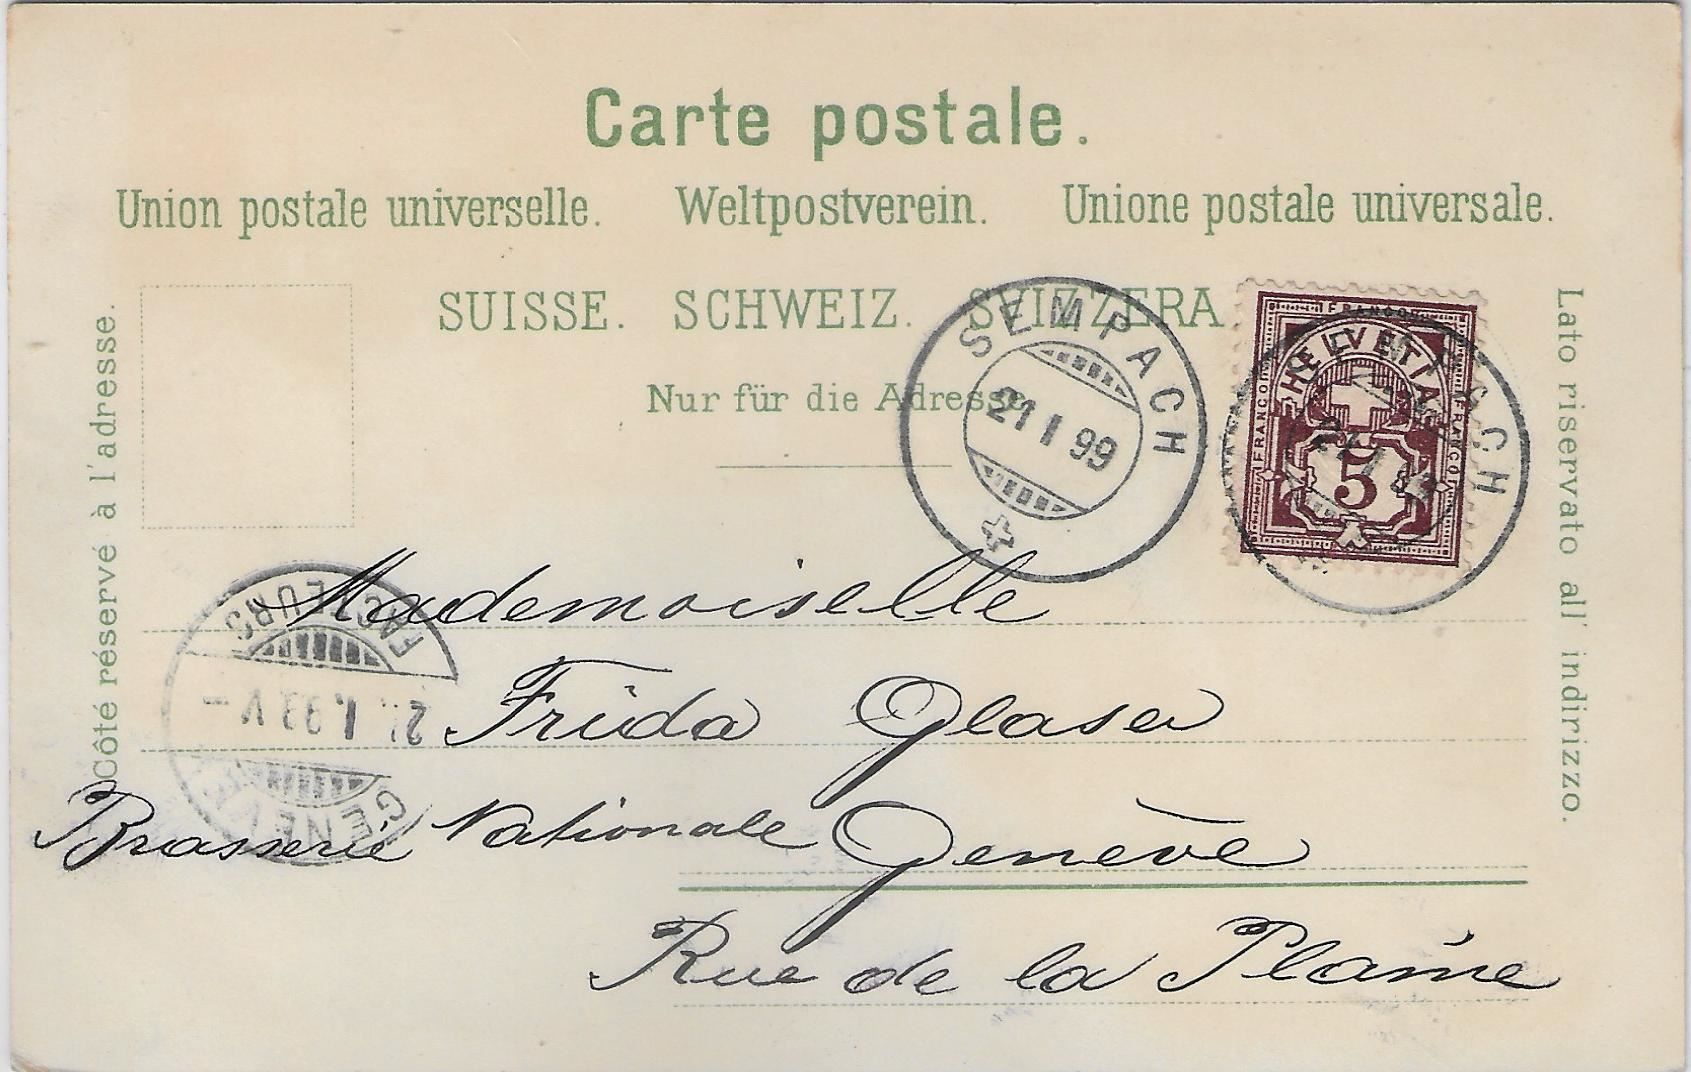 Carte postale.
Union postale universelle. Weltpostverein. Unione postale universale.
SUISSE. SCHWEIZ. SVIZZERA.
Nur für die Adresse
Côté réservé à l'adresse.
Lato riservato all' indirizzo.
SEMPACH
21 I 99
FRANCO
HELVETIA
FRANCO
FRANCO
5
SEMPACH
FACTEURS
I.99 V –
GENÈVE
Mademoiselle
Frieda Glaser
Brasserie Nationale Genève
Rue de la Plaine